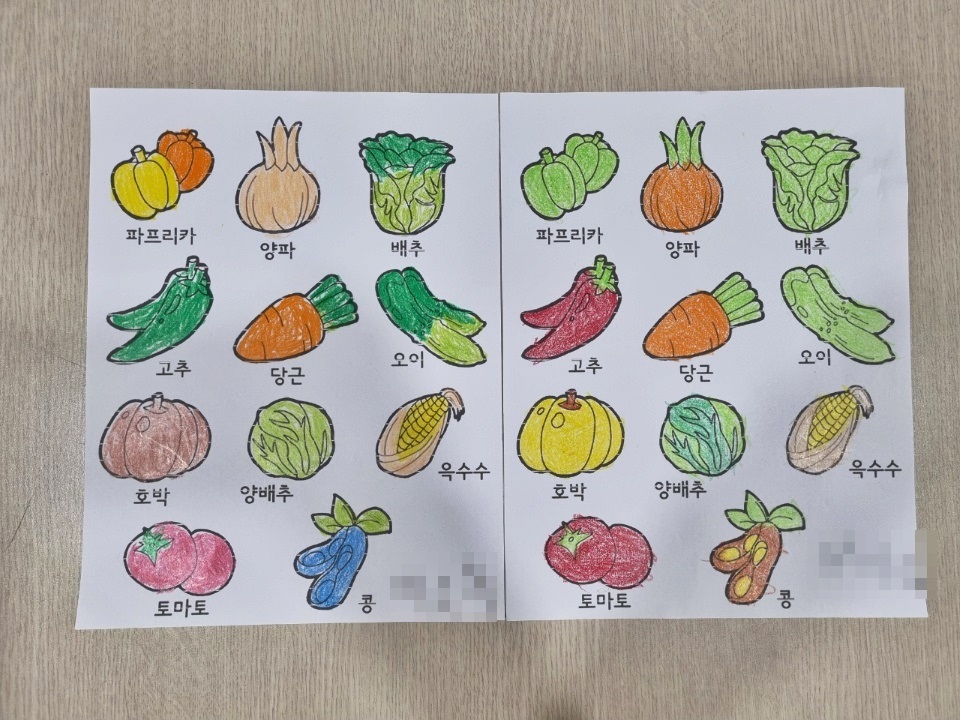 파프리카 양파 배추
고추 당근 오이
호박 양배추 옥수수
토마토 콩
파프리카 양파 배추
고추 당근 오이
호박 양배추 옥수수
토마토 콩